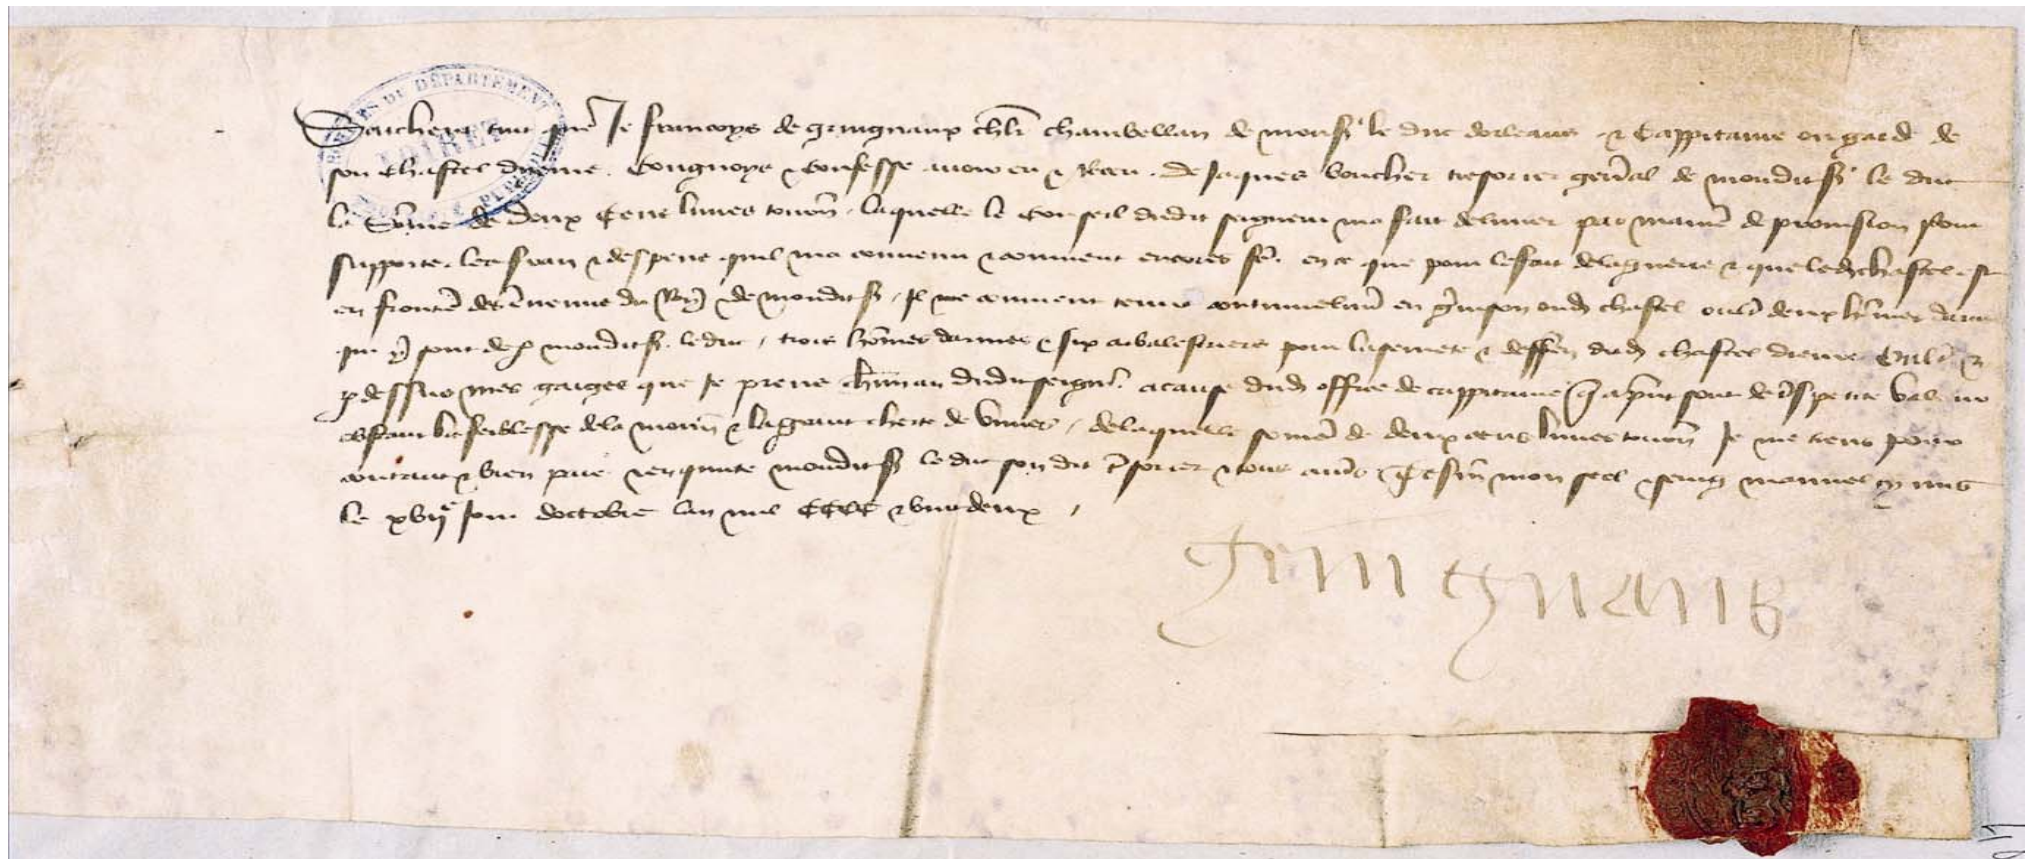 ARCHIVES DU DÉPARTEMENT LOIRET
Saichent tuit que Je francoys de gringnaux chlr chambellan de monsr le duc dorleans & Cappitaine en garde de
son chastel Congnoys & confesse avoir eu & Receu de Jaques boucher tresorier genal de mondit sr le duc
la Some de deux Cens livres tourn laquelle le Conseil dudit seigneur ma fait delivrer par maniere de provision pour
supporter les fraiz & despens quil ma convenu & convient encores fe en ce que pour le fait de la guerre & que led chastel est
en frontie des du Roy & de mondit sr Il me convient tenir continuelment en gnison oud chastel oult deux homes darmes
qui y sont de p mondit sr le duc trois homes darmes & six arbalestriers pour la seurete & deffen dud chastel oult &
p dessus mes gaiges que Je prens chun an dudit seignr a cause dud office de cappitaine q a pnt sont de petite valeur
obstant la feiblesse de la monn & la grant cherte de vivres de laquelle some de deux cens livres tourn Je me tiens pour
content & bien paie & en quitte mondit sr le duc son dit tsorier & tous autres Tesm mon seel & seing manuel cy mis
le xvij e Jour doctobre lan mil CCCC & vint deux
gringnaux